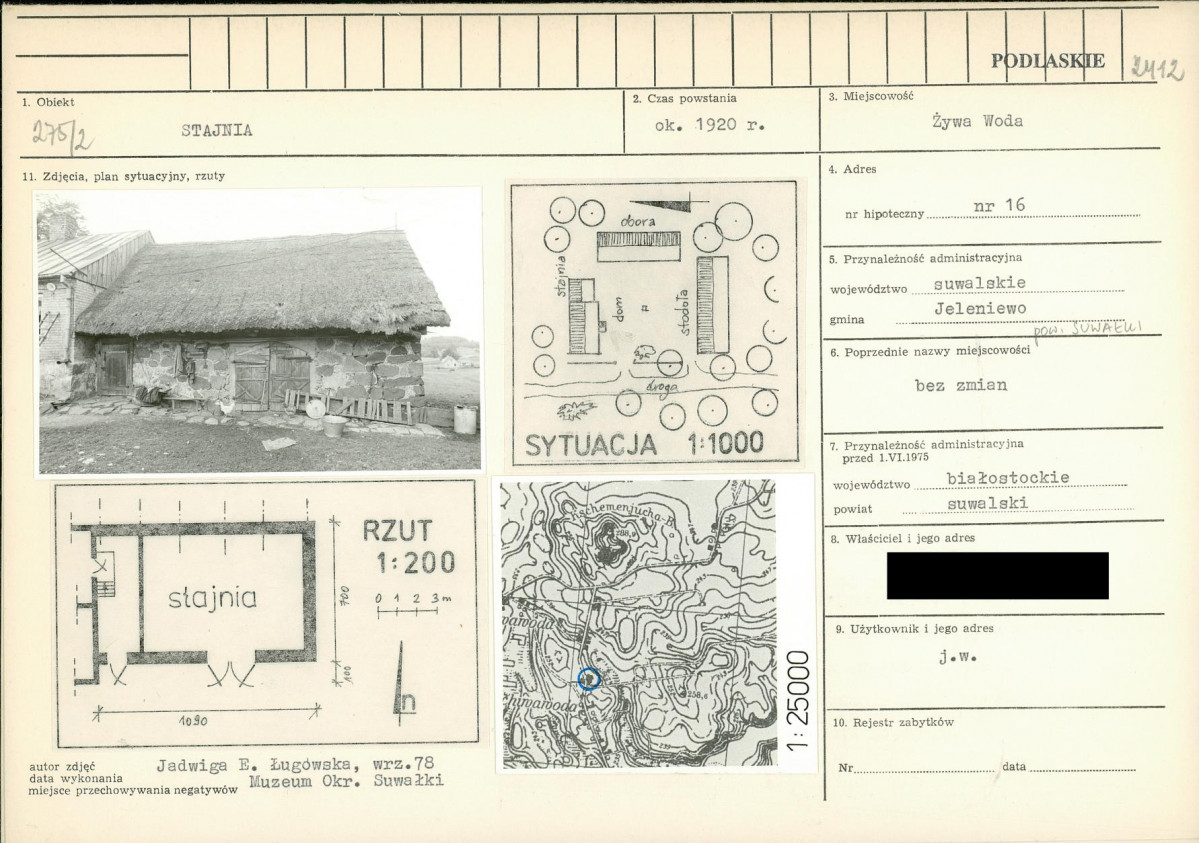 PODLASKIE
2412
1. Obiekt
275/2
STAJNIA
2. Czas powstania
ok. 1920 r.
3. Miejscowość
Żywa Woda
11. Zdjęcia, plan sytuacyjny, rzuty
obora
stajnia
dom
stodoła
droga
SYTUACJA 1:1000
RZUT
1:200
0 1 2 3 m
stajnia
700
100
1090
n
288,9
258,6
1:25000
autor zdjęć
data wykonania
miejsce przechowywania negatywów
Jadwiga E. Ługowska, wrz.78
Muzeum Okr. Suwałki
4. Adres
nr hipoteczny nr 16
5. Przynależność administracyjna
województwo suwalskie
gmina Jeleniewo
pow. SUWAŁKI
6. Poprzednie nazwy miejscowości
bez zmian
7. Przynależność administracyjna
przed 1.VI.1975
województwo białostockie
powiat suwalski
8. Właściciel i jego adres
9. Użytkownik i jego adres
j.w.
10. Rejestr zabytków
Nr data